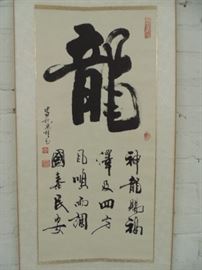 龍
神龍賜福
澤及四方
風順雨調
國泰民安